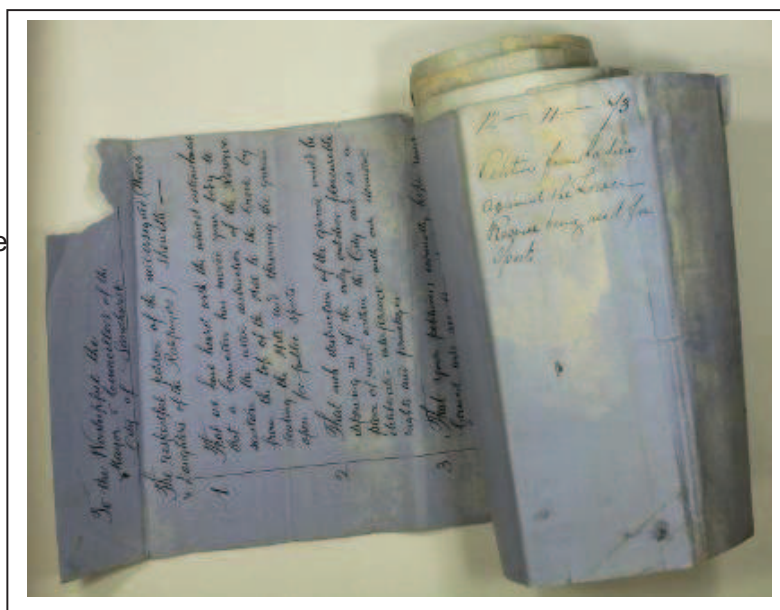 e
To the Worshipful the
Mayor & Councillors of the
City of Sandhurst
The respectful petition of the undersigned (Wives
& Daughters of the Ratepayers) Sheweth —
1 That we have heard with the utmost astonishment
that a Committee has moved your body to
sanction the utter destruction of the Reserve
from the top of the Hill to the creek by
the Hill and throwing the ground
open for public sports
2 That such destruction of the ground would be
depriving us of the only outdoor pleasurable
place of resort within the City and is a
interference with our domestic
rights and privileges
3 That your petitioners earnestly hope
Ground
12 — 11 — 73
Petition from Ladies
against the Lower
Reserve being used for
Sports